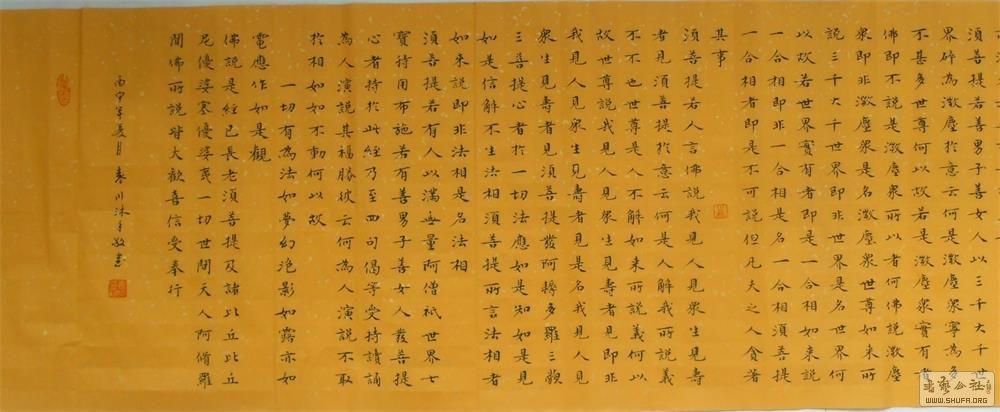 須菩提若善男子善女人以三千大千世
界碎為微塵於意云何是微塵衆寧為多
不甚多世尊何以故若是微塵衆實有者
佛即不說是微塵衆所以者何佛說微塵
衆即非微塵衆是名微塵衆世尊如来所
說三千大千世界即非世界是名世界何
以故若世界實有者即是一合相如来說
一合相即非一合相是名一合相須菩提
一合相者即是不可說但凡夫之人貪著
其事
須菩提若人言佛說我見人見衆生見壽
者見須菩提於意云何是人解我所說義
不不也世尊是人不解如来所說義何以
故世尊說我見人見衆生見壽者見即非
我見人見衆生見壽者見是名我見人見
衆生見壽者見須菩提發阿耨多羅三藐
三菩提心者於一切法應如是知如是見
如是信解不生法相須菩提所言法相者
如来說即非法相是名法相
須菩提若有人以滿無量阿僧祇世界七
寶持用布施若有善男子善女人發菩提
心者持於此經乃至四句偈等受持讀誦
為人演說其福勝彼云何為人演說不取
於相如如不動何以故
一切有為法如夢幻泡影如露亦如
電應作如是觀
佛說是經已長老須菩提及諸比丘比丘
尼優婆塞優婆夷一切世間天人阿脩羅
聞佛所說皆大歡喜信受奉行
丙申年夏月春川沐手敬書
書藝公社
WWW.SHUFA.ORG